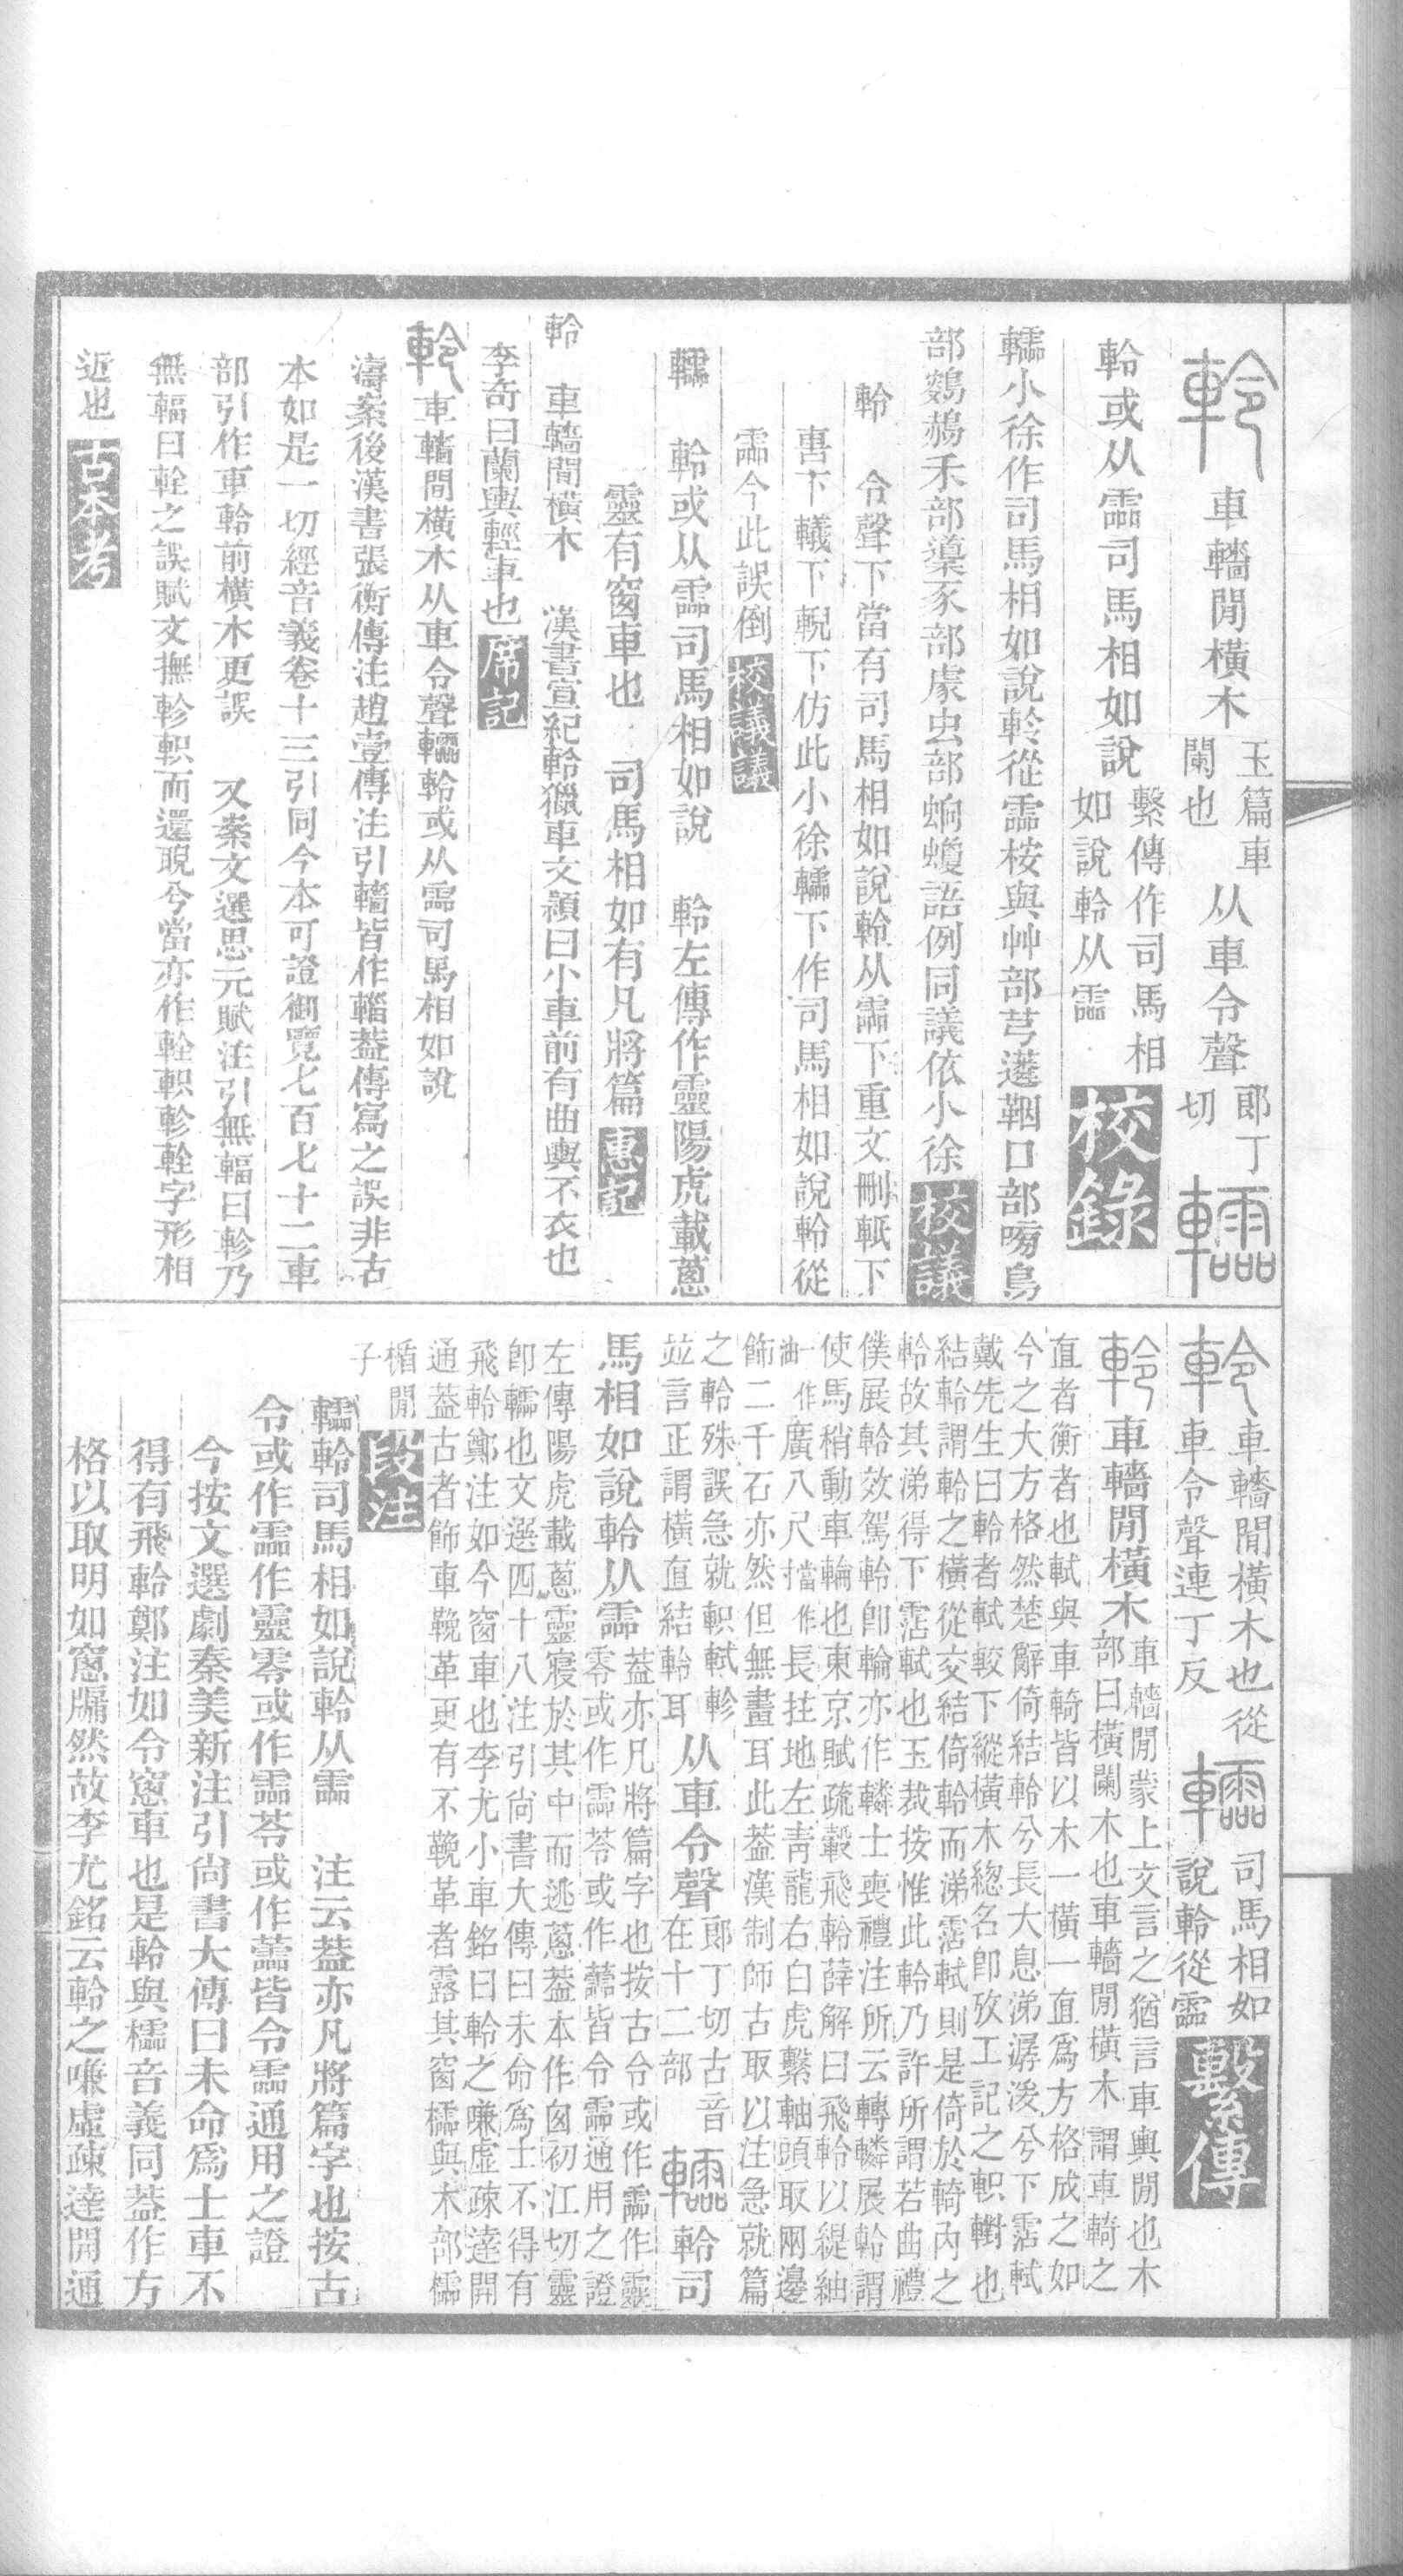 軨車轖閒橫木玉篇車闌也从車令聲郎丁切轜
軨或从霝司馬相如說繫傳作司馬相如說軨从霝校錄
轜小徐作司馬相如說軨從霝桉與艸部芎䕼䩕口部㗾鳥
部鷊鶮禾部䆃豕部豦虫部蚼蠁語例同議依小徐校議
軨 令聲下當有司馬相如說軨从霝下重文刪軝下
軎下轙下輗下仿此小徐轜下作司馬相如說軨從
霝今此誤倒校議議
轜 軨或从霝司馬相如說 軨左傳作靈陽虎載蔥
靈有窗車也 司馬相如有凡將篇惠記
軨 車轖閒橫木 漢書宣紀軨獵車文穎曰小車前有曲輿不衣也
李奇曰蘭輿輕車也席記
軨車轖間橫木从車令聲轜軨或从霝司馬相如說
濤案後漢書張衡傳注趙壹傳注引轖皆作輜蓋傳寫之誤非古
本如是一切經音義卷十三引同今本可證御覽七百七十二車
部引作車軨前橫木更誤 又案文選思元賦注引無輻曰軫乃
無輻曰輇之誤賦文撫軫軹而還睨兮當亦作輇軹軫輇字形相
近也古本考
軨車轖閒橫木也從車令聲連丁反轜司馬相如說軨從霝繫傳
軨車轖閒橫木車轖閒蒙上文言之猶言車輿閒也木部曰橫闌木也車轖閒橫木謂車輢之
直者衡者也軾與車輢皆以木一橫一直爲方格成之如
今之大方格然楚辭倚結軨兮長大息涕潺湲兮下霑軾
戴先生曰軨者軾較下縱橫木總名卽攷工記之軹轛也
結軨謂軨之橫從交結倚軨而涕霑軾則是倚於輢內之
軨故其涕得下霑軾也玉裁按惟此軨乃許所謂若曲禮
僕展軨效駕軨卽輪亦作轔士喪禮注所云轉轔展軨謂
使馬稍動車輪也東京賦疏轂飛軨薛解曰飛軨以緹紬
一作油廣八尺擋作長拄地左靑龍右白虎繫軸頭取兩邊
飾二千石亦然但無畫耳此葢漢制師古取以注急就篇
之軨殊誤急就軹軾軫
並言正謂橫直結軨耳从車令聲郎丁切古音在十二部轜軨司
馬相如說軨从霝葢亦凡將篇字也按古令或作霝作靈零或作霝苓或作蘦皆令霝通用之證
左傳陽虎載蔥靈寢於其中而逃蔥葢本作囪初江切靈
卽轜也文選四十八注引尙書大傳曰未命爲士不得有
飛軨鄭注如今窗車也李尤小車銘曰軨之嗛虛疎達開
通葢古者飾車鞔革更有不鞔革者露其窗櫺與木部櫺
楯閒子段注
轜軨司馬相如說軨从霝 注云葢亦凡將篇字也按古
令或作霝作靈零或作霝苓或作蘦皆令霝通用之證
今按文選劇秦美新注引尙書大傳曰未命爲士車不
得有飛軨鄭注如今窻車也是軨與櫺音義同葢作方
格以取明如窻牖然故李尤銘云軨之嗛虛疎達開通